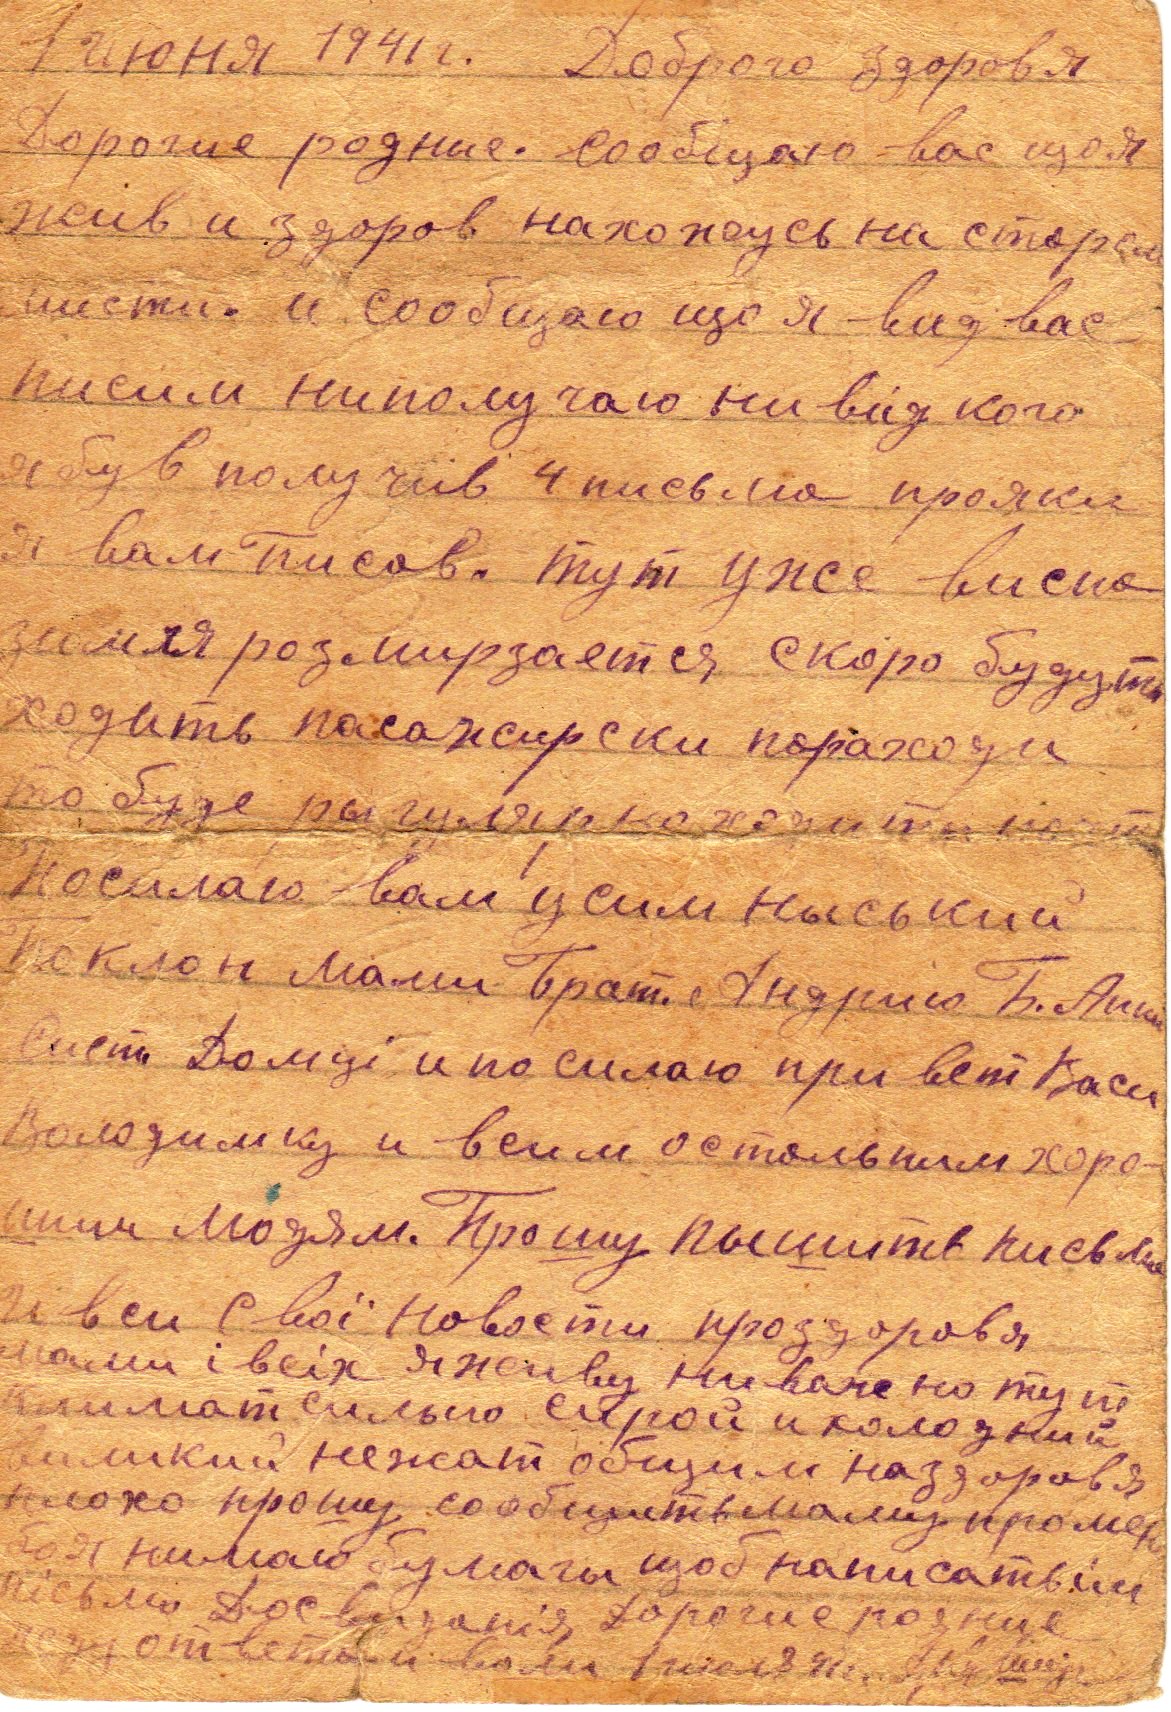 1 июня 1941 г. Доброго здоровя
Дорогие родние. сообіщаю вас що я
жив и здоров нахожусь на старом
мисти. и сообщаю що я вид вас
писим ни получаю ни від кого
я був получів 4 письма прояки
я вам писав. тут уже висна
зимля розмирзается скоро будуть
ходить пасажирски параходи
то буде рыгулярно ходити почт
Посилаю вам усим ныський
Поклон мами Брат. Андрию Б.
Сист. Домці и посилаю привет Васи
Володимку и всим остальним харо-
шим людям. Прошу пышить письма
и вси свої новости проздоровя
мами і всіх я живу ниважно тут
климат сильно сирой и холодний
виликий нежат общим наздоровя
плохо прошу сообщить маму про мен
бо я нимаю бумагы щоб написать їм
письмо Досвиданія Дорогие родние
жду ответа и вами 1 июля 41 г.